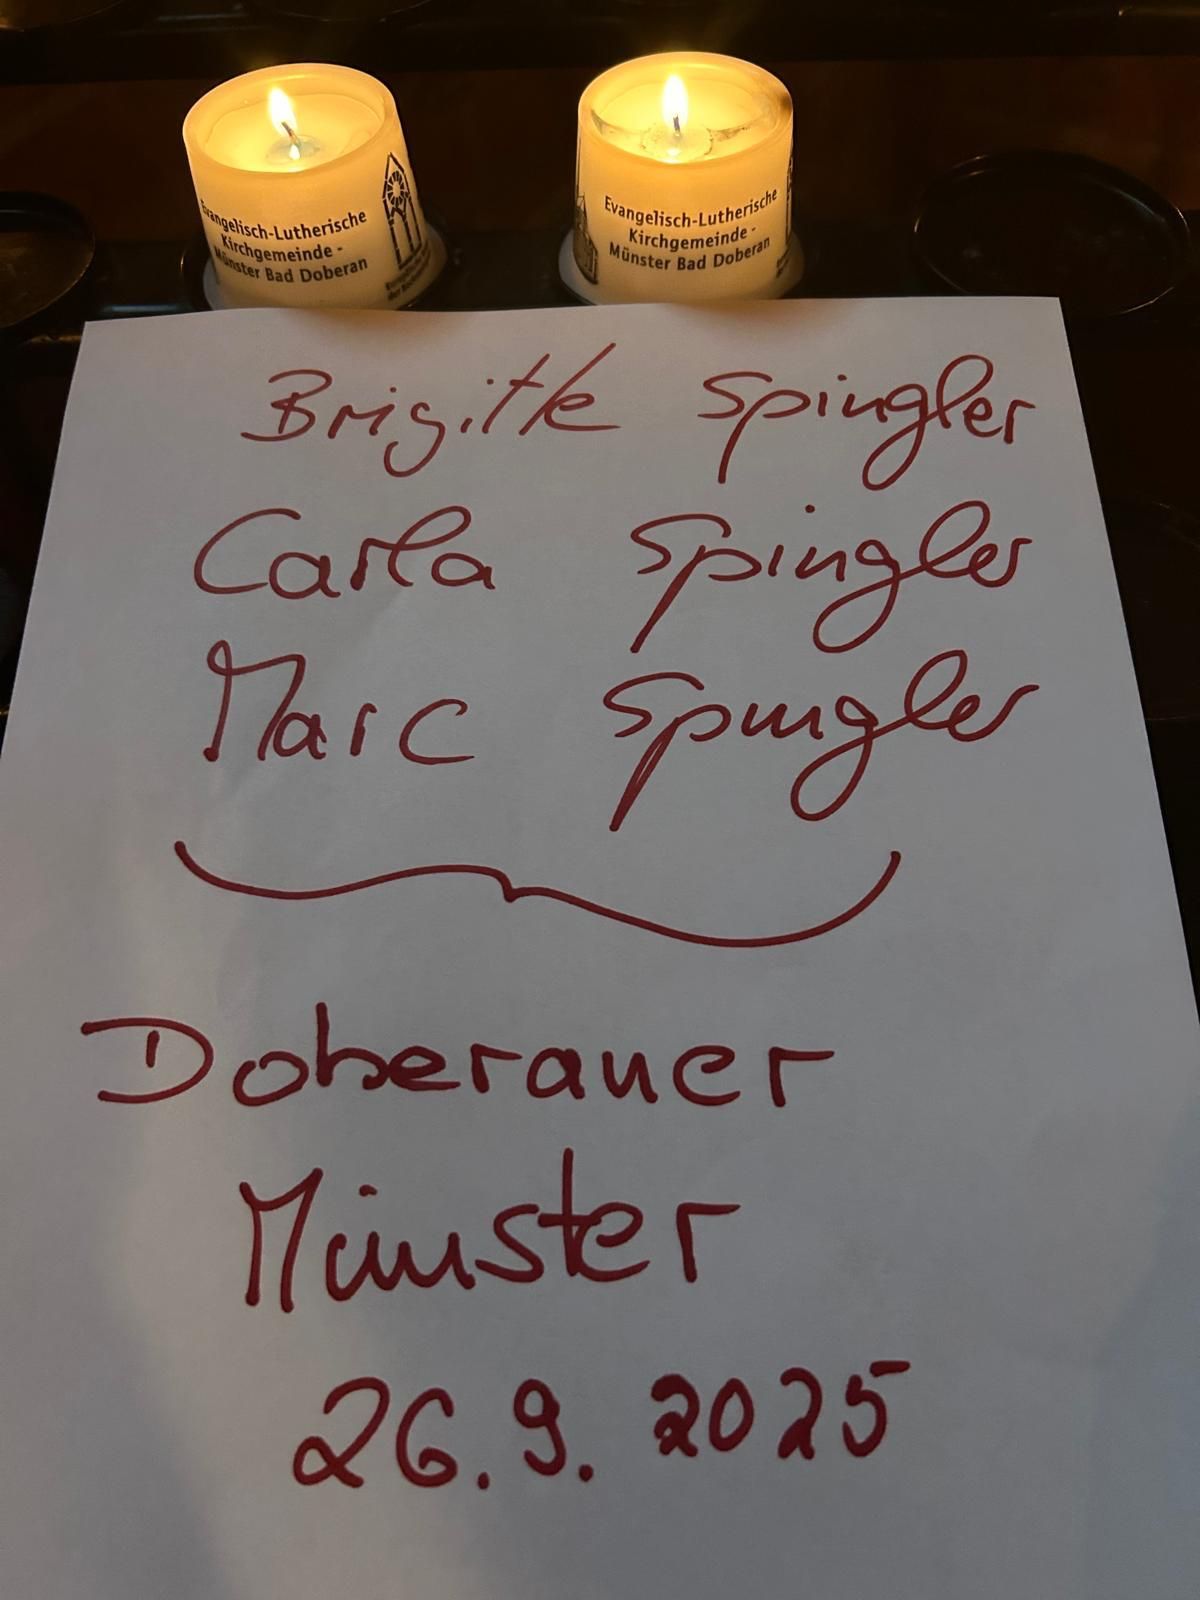 Evangelisch-Lutherische
Kirchgemeinde -
Münster Bad Doberan
Evangelisch-Lutherische
Kirchgemeinde -
Münster Bad Doberan
Brigitte Spingler
Carla Spingler
Marc Spingler
Doberaner
Münster
26.9.2025